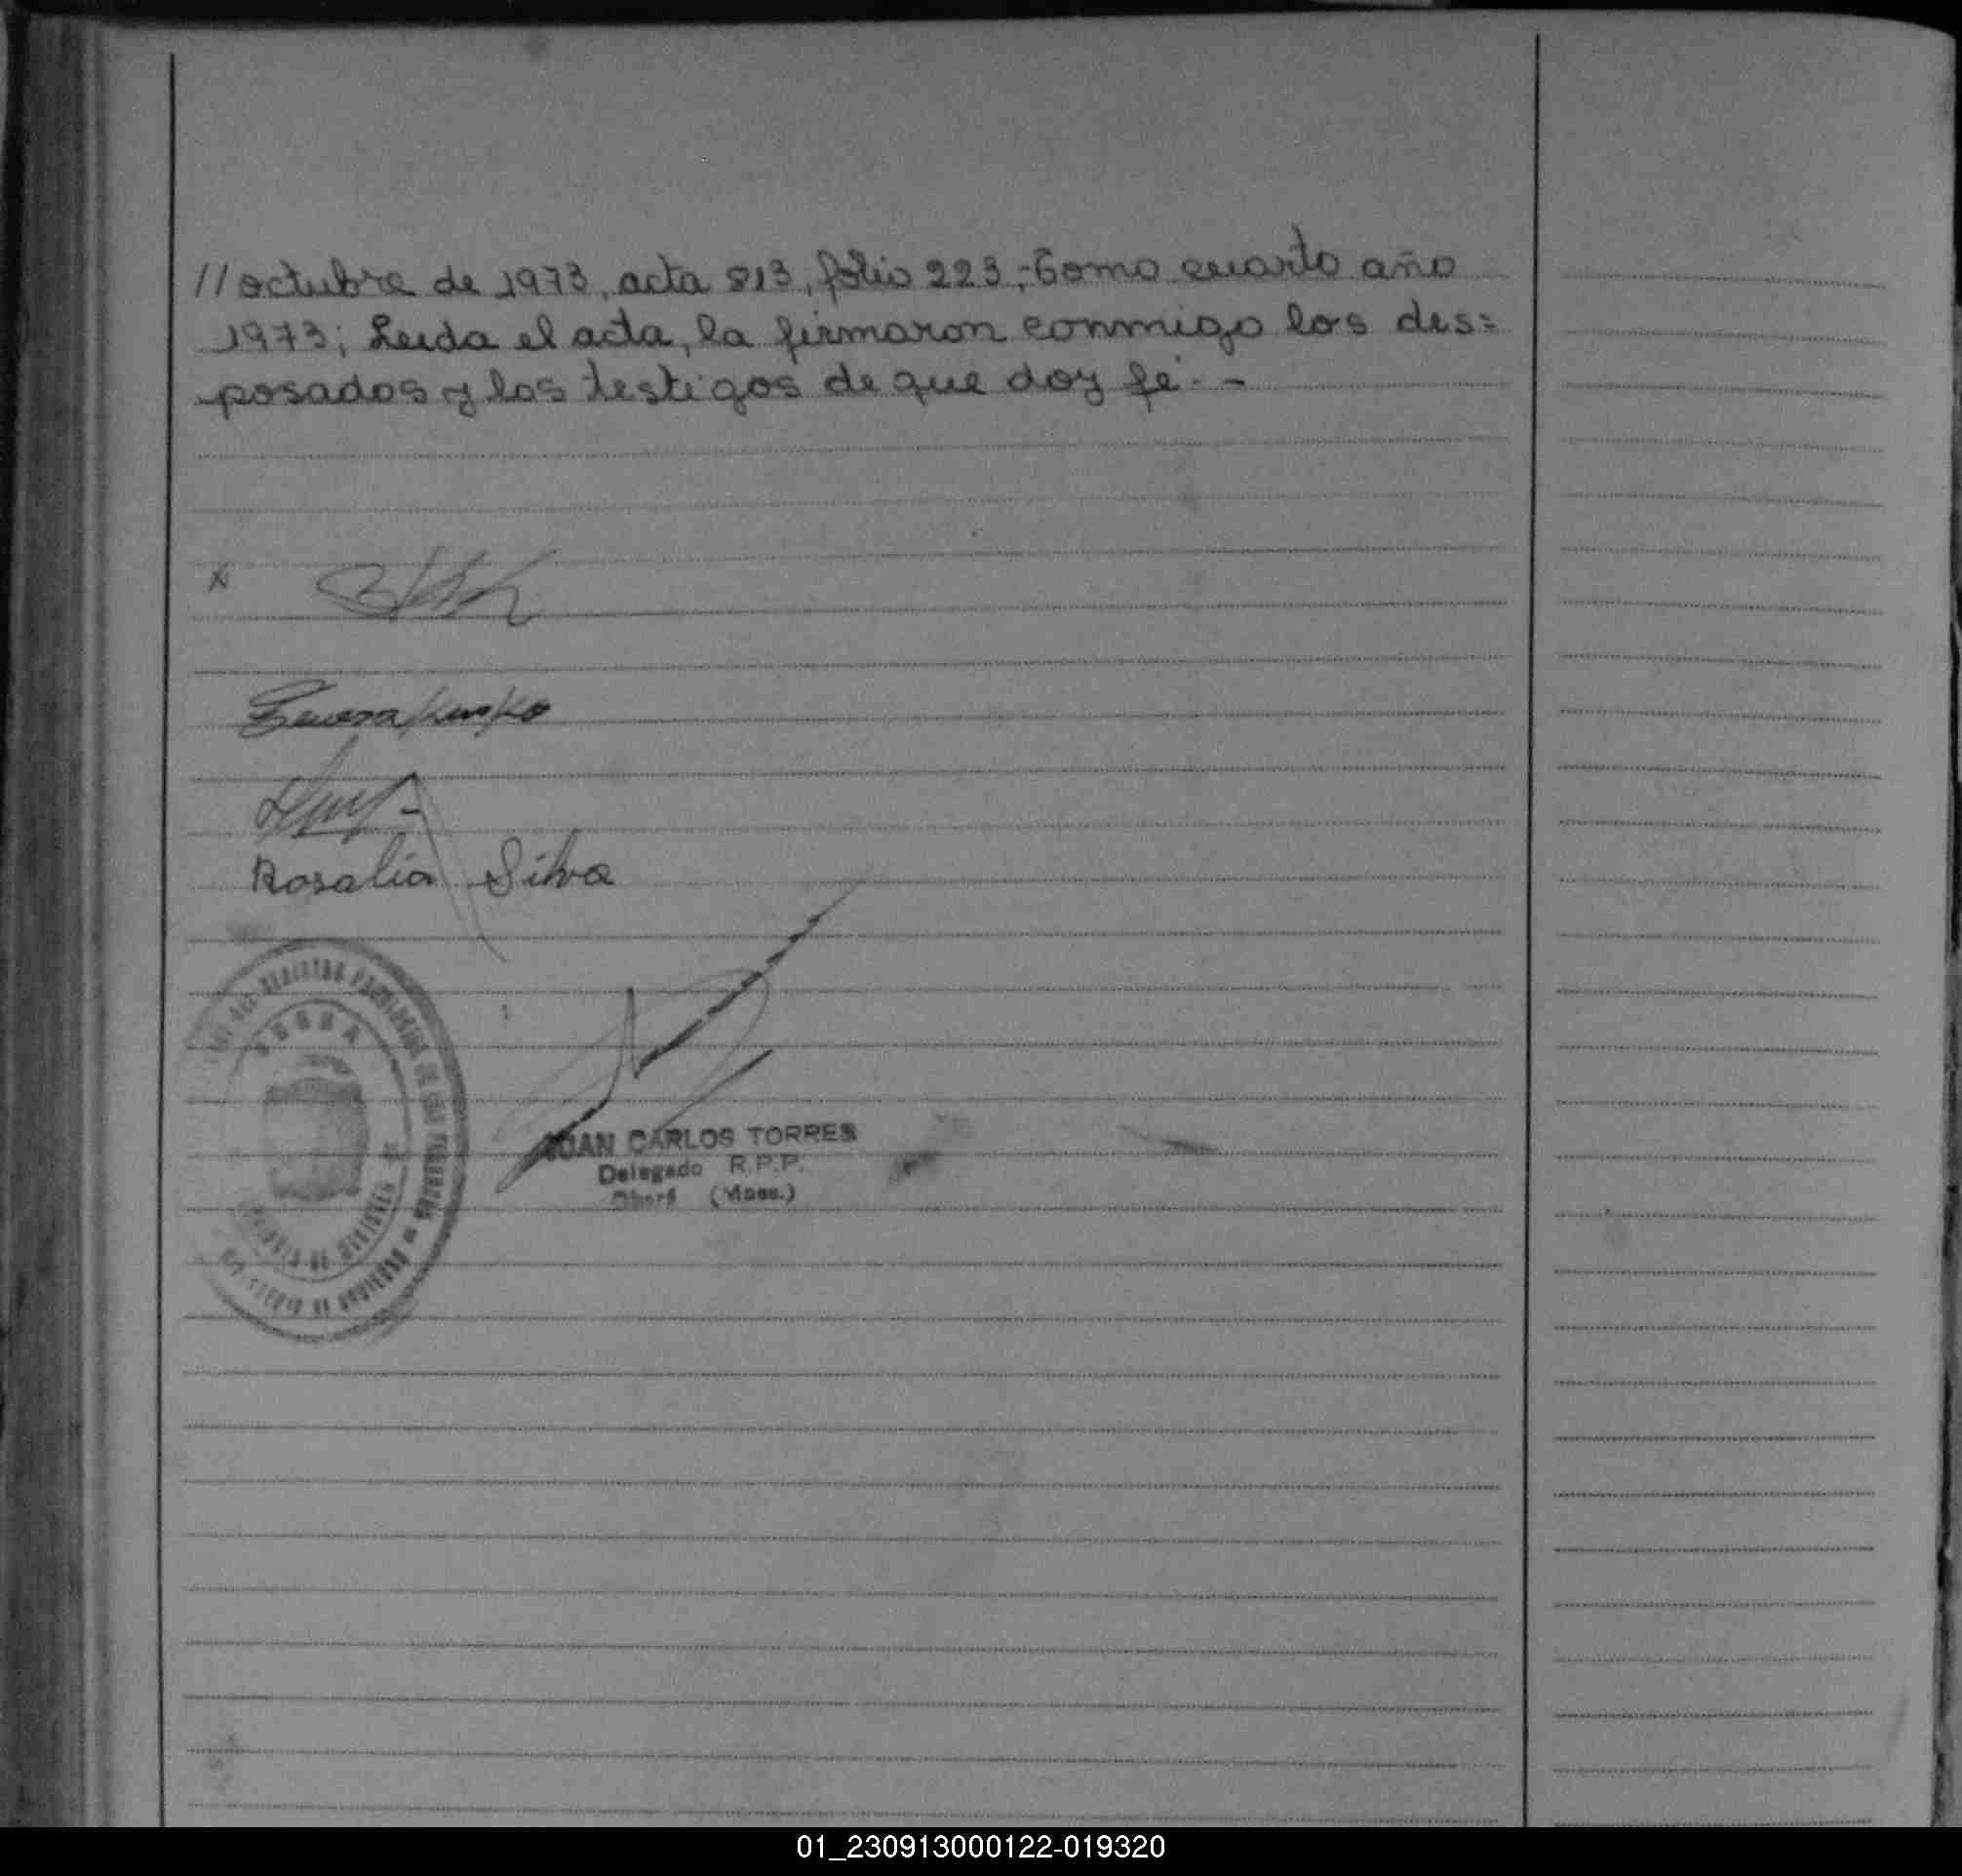 // octubre de 1973, acta 813, folio 223,- Tomo cuarto año
1973; Leida el acta, la firmaron conmigo los des=
posados y los testigos de que doy fé. -
x
Rosalia Silva
OBERA
JUAN CARLOS TORRES
Delegado R.P.P.
Oberá (Mnes.)
01_230913000122-019320